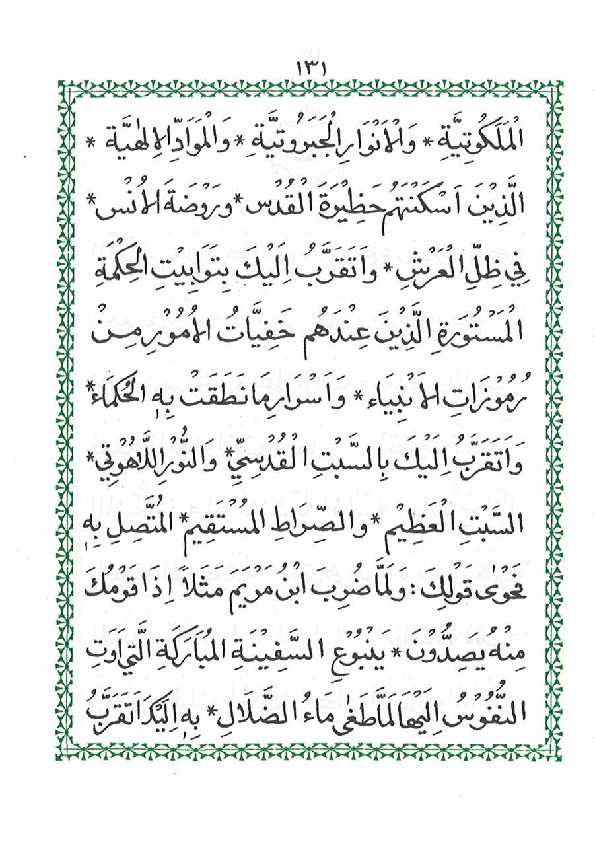 ١٣١
الْمَلَكُوْتِيَّةِ * وَالْاَنْوَارِ الْجَبَرُوْتِيَّةِ * وَالْمَوَادِّ الْاِلٰهِيَّةِ *
الَّذِيْنَ اَسْكَنْتَهُمْ حَظِيْرَةَ الْقُدْسِ * وَرَوْضَةَ الْاُنْسِ *
فِيْ ظِلِّ الْعَرْشِ * وَاَتَقَرَّبُ اِلَيْكَ بِتَوَابِيْتِ الْحِكْمَةِ
الْمَسْتُوْرَةِ الَّذِيْنَ عِنْدَهُمْ خَفِيَّاتُ الْاُمُوْرِ مِنْ
رُمُوْزَاتِ الْاَنْبِيَاءِ * وَاَسْرَارِ مَا نَطَقَتْ بِهِ الْحُكَمَاءُ *
وَاَتَقَرَّبُ اِلَيْكَ بِالسَّبْتِ الْقُدْسِيِّ * وَالنُّوْرِ اللَّاهُوْتِيِّ *
السَّبْتِ الْعَظِيْمِ * وَالصِّرَاطِ الْمُسْتَقِيْمِ * الْمُتَّصِلِ بِهِ
فَحْوٰى قَوْلِكَ : وَلَمَّا ضُرِبَ ابْنُ مَرْيَمَ مَثَلًا اِذَا قَوْمُكَ
مِنْهُ يَصِدُّوْنَ * يَنْبُوْعِ السَّفِيْنَةِ الْمُبَارَكَةِ الَّتِيْ اَوَتِ
النُّفُوْسُ اِلَيْهَا لَمَّا طَغٰى مَاءُ الضَّلَالِ * بِهِ اِلَيْكَ اَتَقَرَّبُ